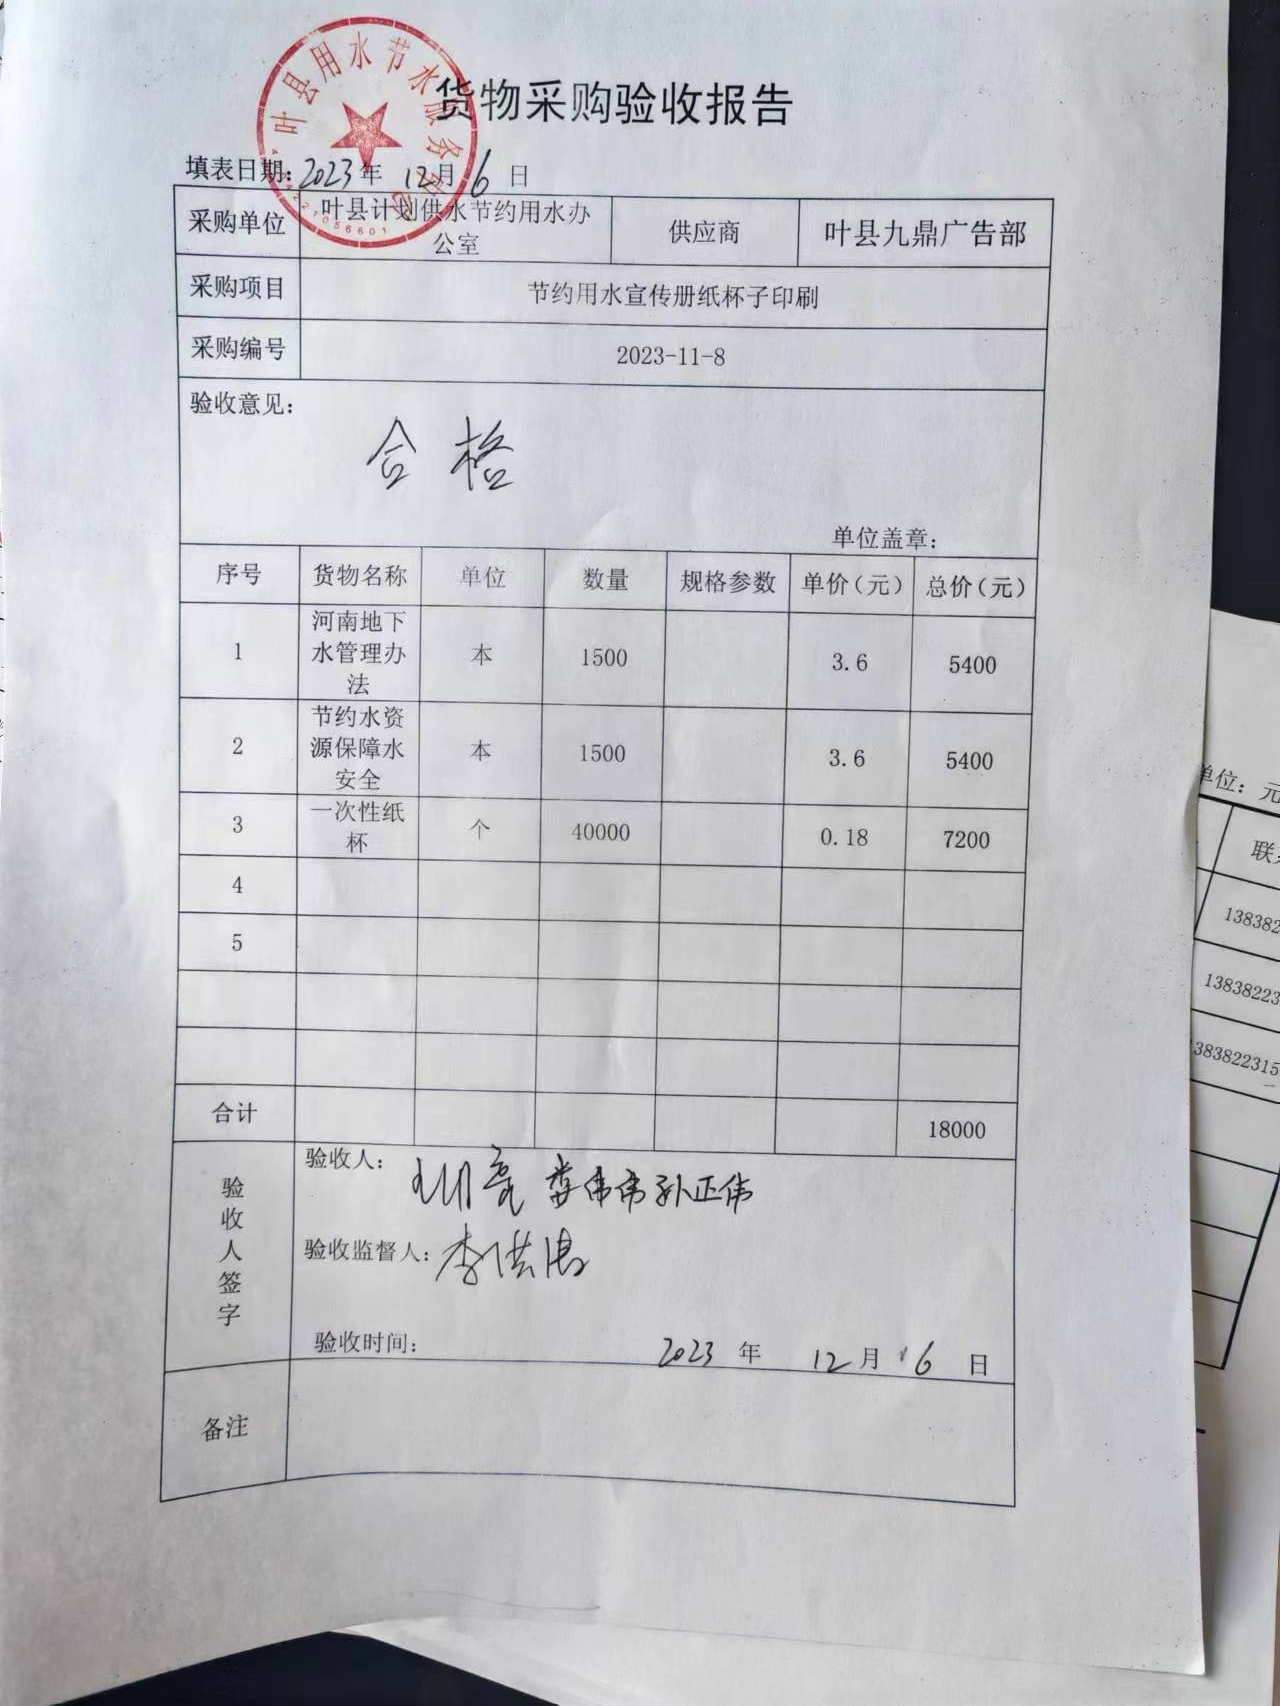 叶县用水节水服务
货物采购验收报告
填表日期:2023年 12月 6 日
采购单位
叶县计划供水节约用水办
公室
供应商
叶县九鼎广告部
4221056601
采购项目
节约用水宣传册纸杯子印刷
采购编号
2023-11-8
验收意见:
合格
单位盖章:
序号 货物名称 单位 数量 规格参数 单价(元) 总价(元)
1
河南地下
水管理办
法
本 1500 3.6 5400
2
节约水资
源保障水
安全
本 1500 3.6 5400
3
一次性纸
杯
个 40000 0.18 7200
4
5
合计 18000
验收人签字
验收人: 娄伟伟 孙正伟
验收监督人: 李洪涛
验收时间: 2023 年 12月 6 日
备注
单位: 元
联
138382
13838223
1383822315